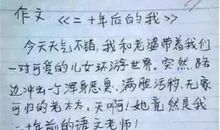 作文 《二十年后的我》
今天天气不错,我和老婆带着我们
一对可爱的儿女环游世界。突然,路
边冲出一个浑身恶臭、满脸污秽、无家
可归的老太太,天啊!她竟然是我
二十年前的语文老师!